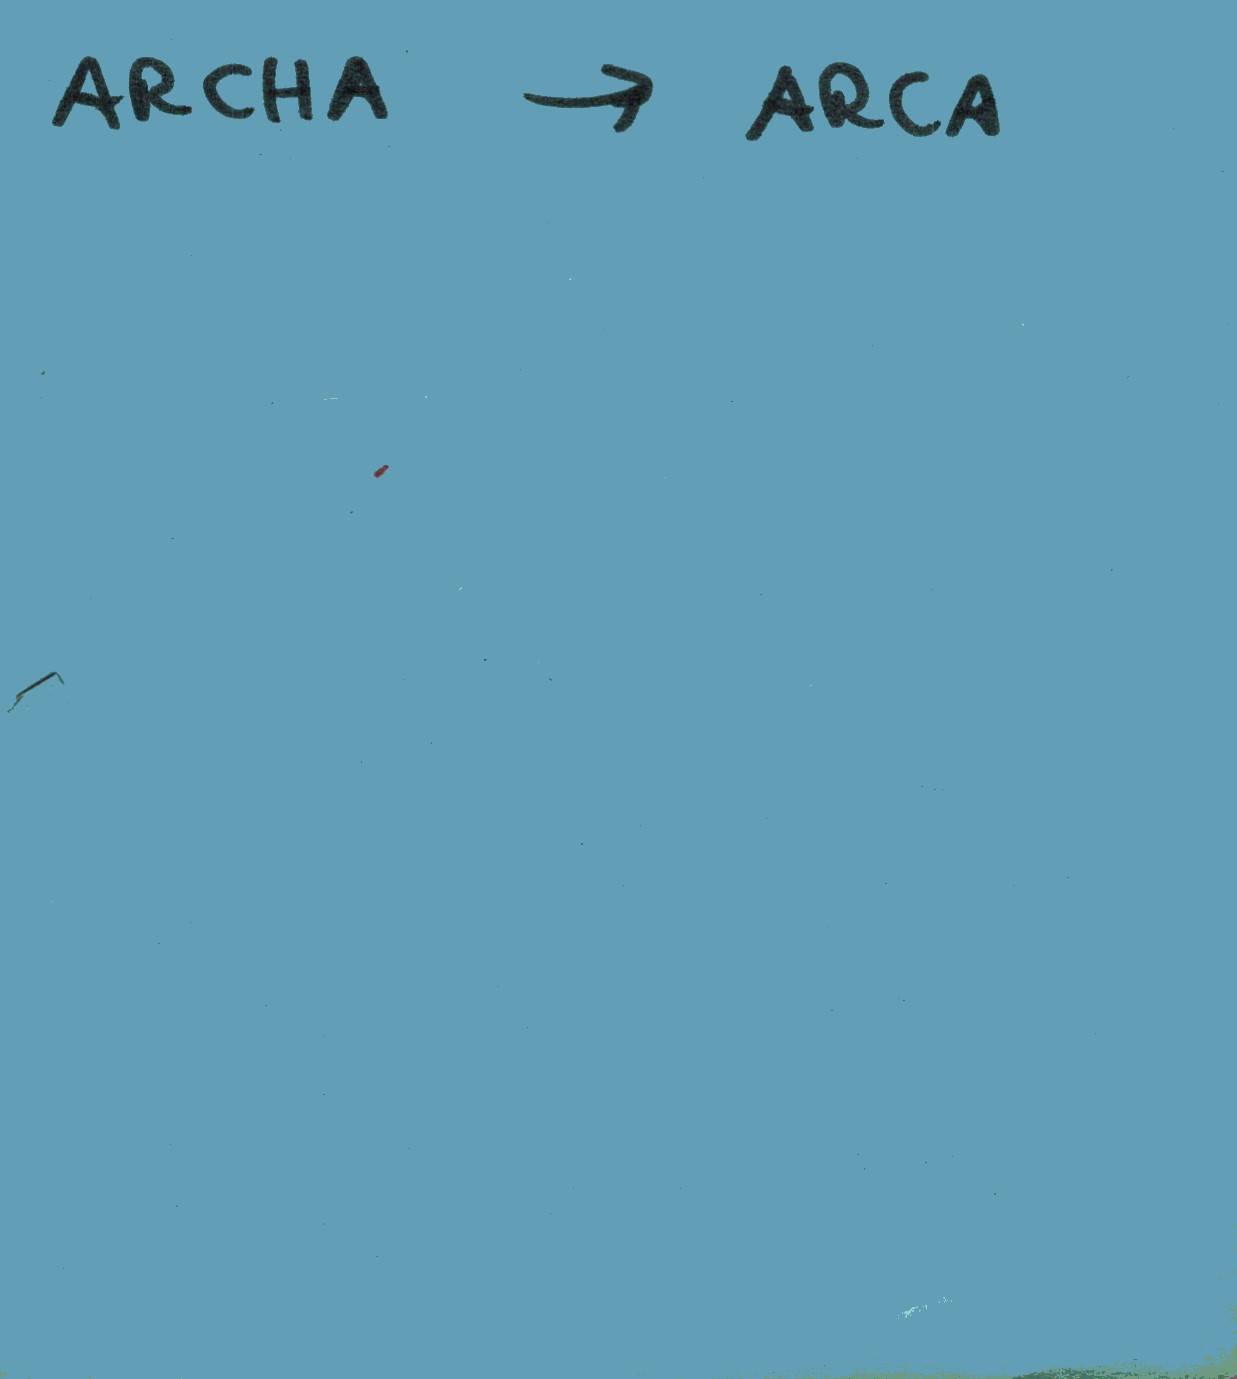 ARCHA → ARCA